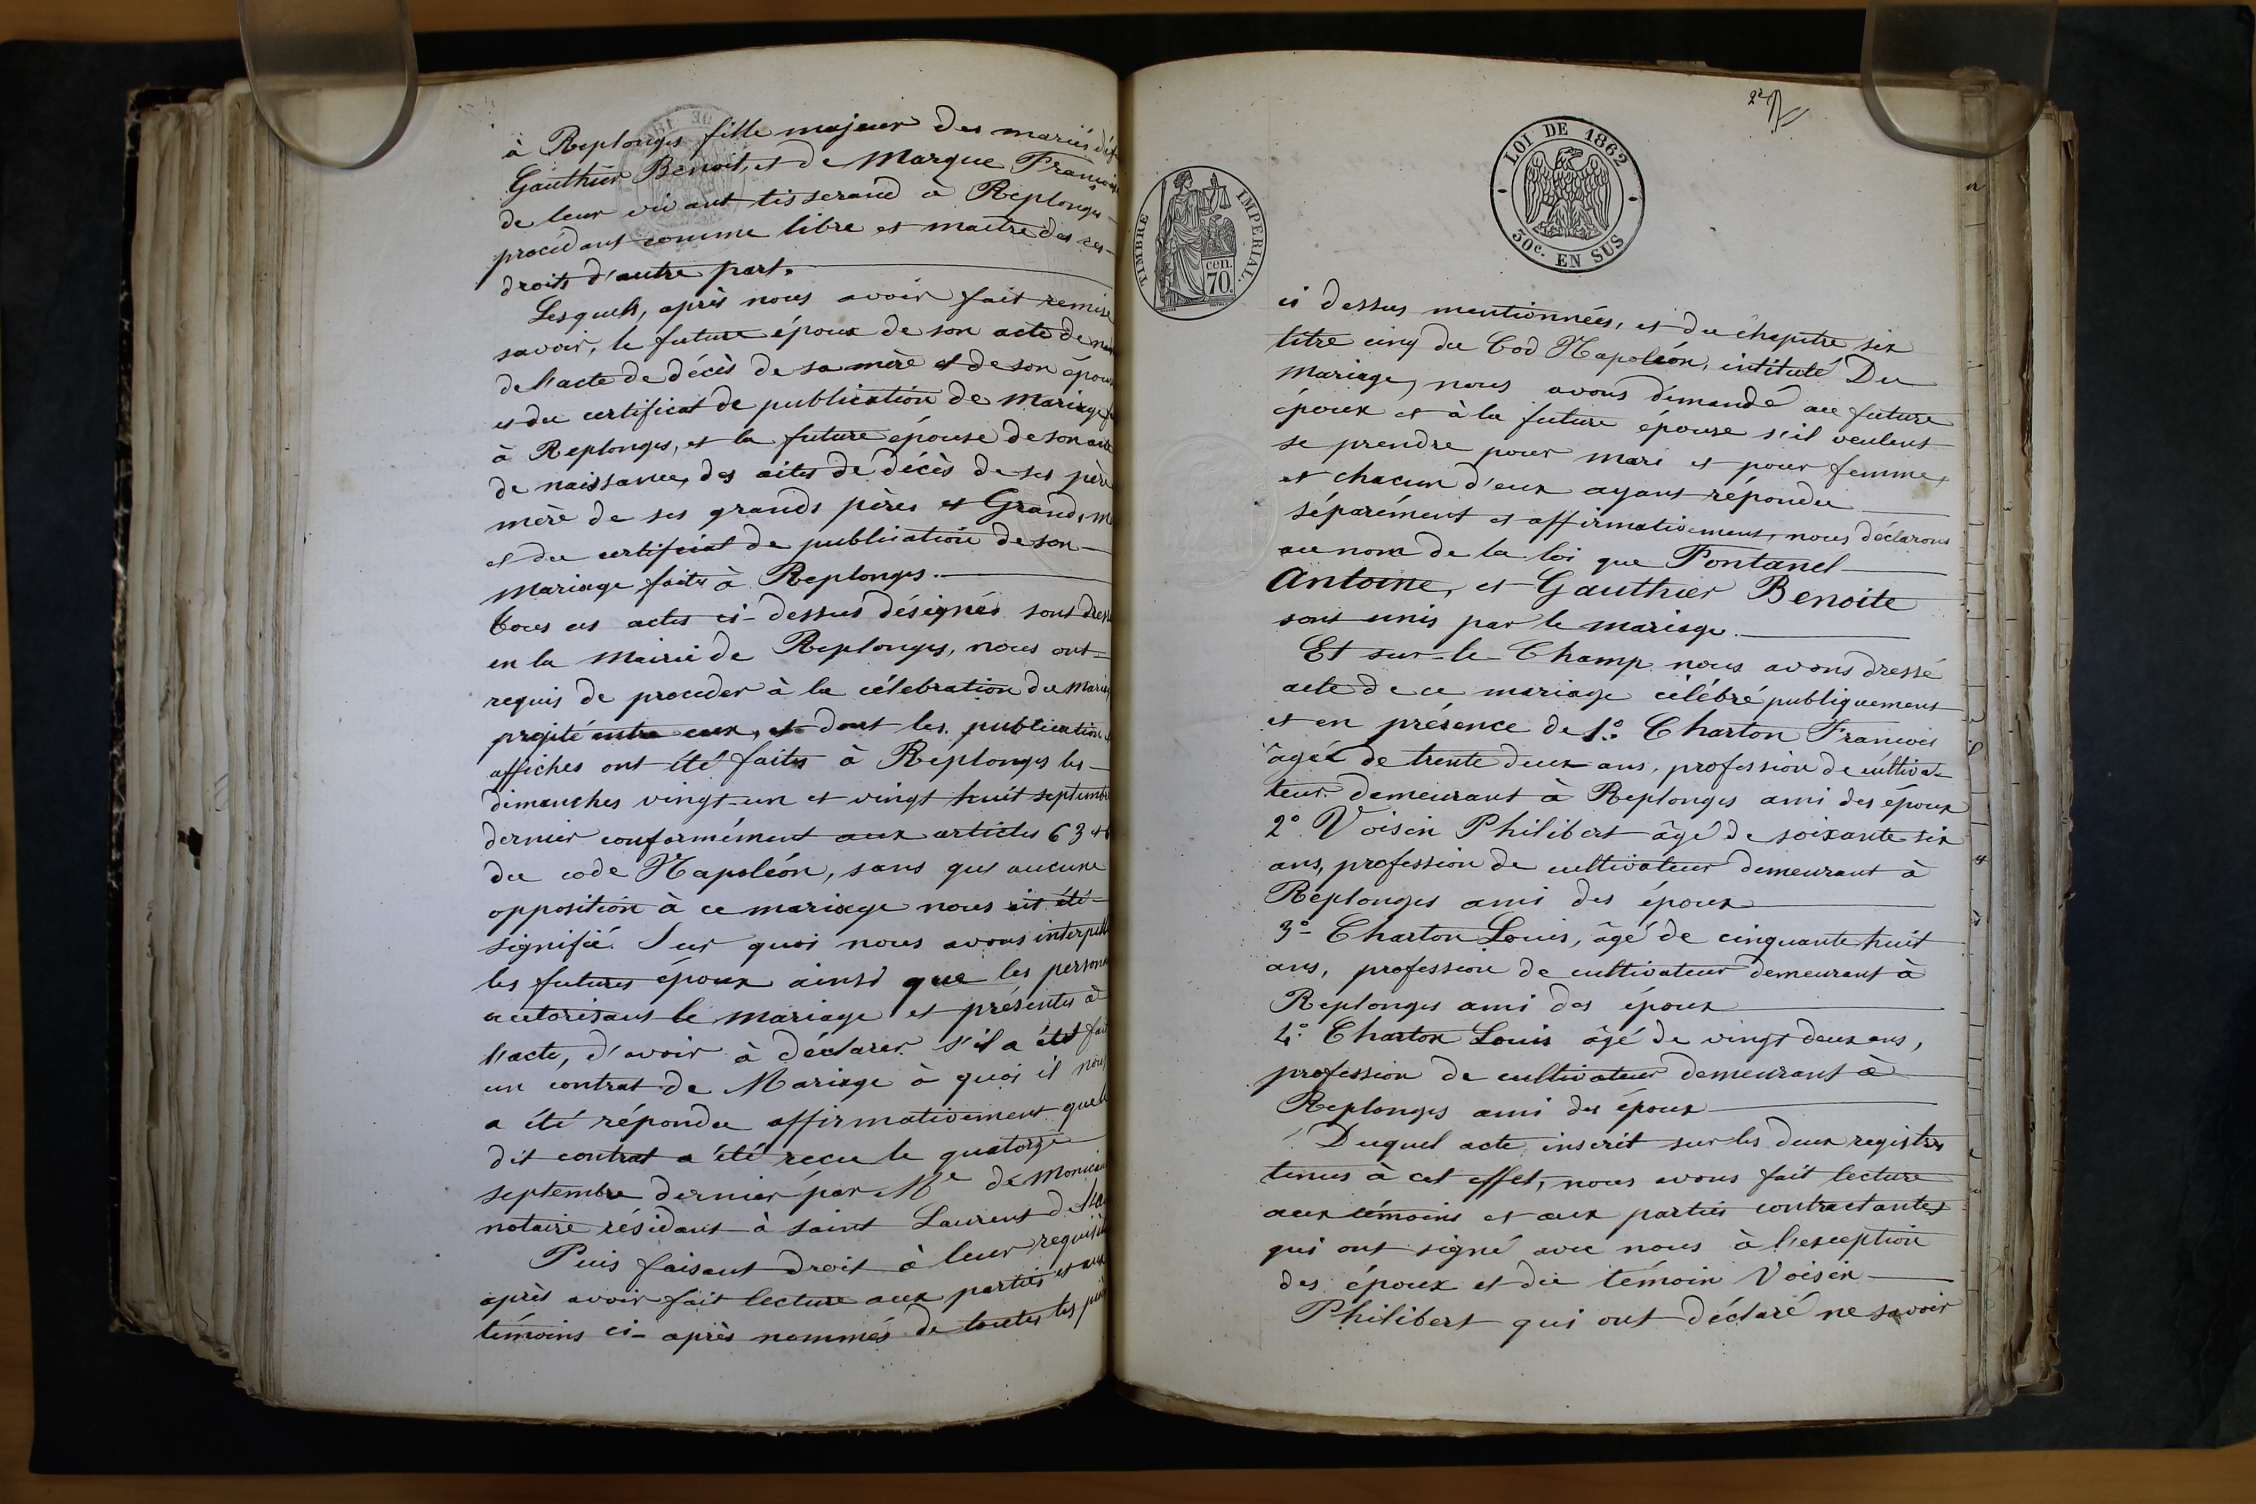 à Replonges fille majeur des mariés déf
Gauthier Benoit, et de Marque Françoise
de leur vivant tisserand à Replonges
procédant comme libre et maitre des ses
droits d'autre part.
Lesquels, après nous avoir fait remise
savoir, le future époux de son acte de nais
de l'acte de décès de sa mère et de son épouse
et du certificat de publication de Mariage
à Replonges, et la future épouse de son acte
de naissance, des actes de décès de ses père
mère de ses grands pères et Grands, m
et du certificat de publication de son
mariage faites à Replonges.
tous ces actes ci-dessus désignés sont dressé
en la Mairie de Replonges, nous ont
requis de proceder à la célébration du Maria
projité entre eux, et dont les publication
affiches ont été faites à Replonges les
dimanches vingt-un et vingt huit septembre
dernier conformément aux articles 63 et
du code Napoléon, sans que aucune
opposition à ce mariage nous ait été
signifié. Sur quoi nous avons interpellé
les futures époux ainsi que les personn
autorisant le mariage et présentes à
l'acte, d'avoir à déclarer s'il a été fait
un contrat de Mariage à quoi il nous
a été répondu affirmativement que le
dit contrat a été recu le quatorze
septembre dernier par Me de Monicau
notaire résidant à saint Laurent
Puis faisant droit à leur requisi
après avoir fait lecture aux parties et aux
témoins ci-après nommés de toutes les piè
2e
LOI DE 1862
30c. EN SUS
TIMBRE IMPERIAL.
cen. 70.
ci dessus mentionnées, et du chapitre six
titre cinq du Cod Napoléon, intitulé Du
Mariage, nous avons demandé au future
époux et à la future épouse s'il veulent
se prendre pour mari et pour femme,
et chacun d'eux ayant répondu
séparément et affirmativement, nous déclarons
au nom de la loi que Fontanel
Antoine, et Gauthier Benoite
sont unis par le mariage.
Et sur-le-Champ nous avons dressé
acte de ce mariage célébré publiquement
et en présence de 1.º Charton Francois
âgée de trente deux ans, profession de cultiva-
teur demeurant à Replonges ami des époux
2º Voisin Philibert âgé de soixante six
ans, profession de cultivateur demeurant à
Replonges ami des époux
3º Charton Louis, âgé de cinquante huit
ans, profession de cultivateur demeurant à
Replonges ami des époux
4.º Charton Louis âgé de vingt deux ans,
profession de cultivateur demeurant à
Replonges ami des époux
Duquel acte, inscrit sur les deux registres
tenus à cet effet, nous avons fait lecture
aux témoins et aux parties contractantes
qui ont signé avec nous à l'exception
des époux et du témoin Voisin
Philibert qui ont déclaré ne savoir